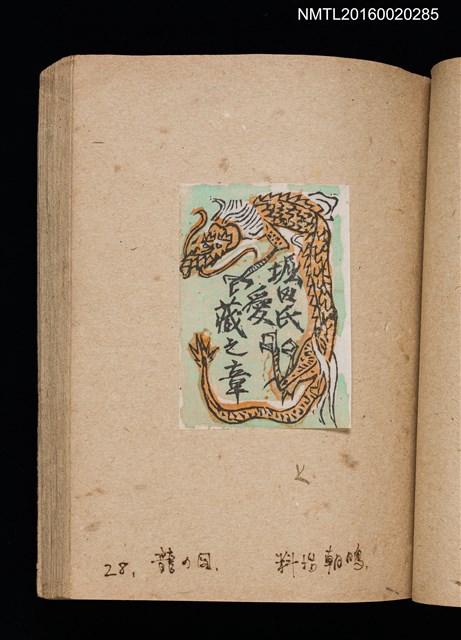 NMTL20160020285
堀田氏
愛
藏之章
28, 龍の図. 料治朝鳴.